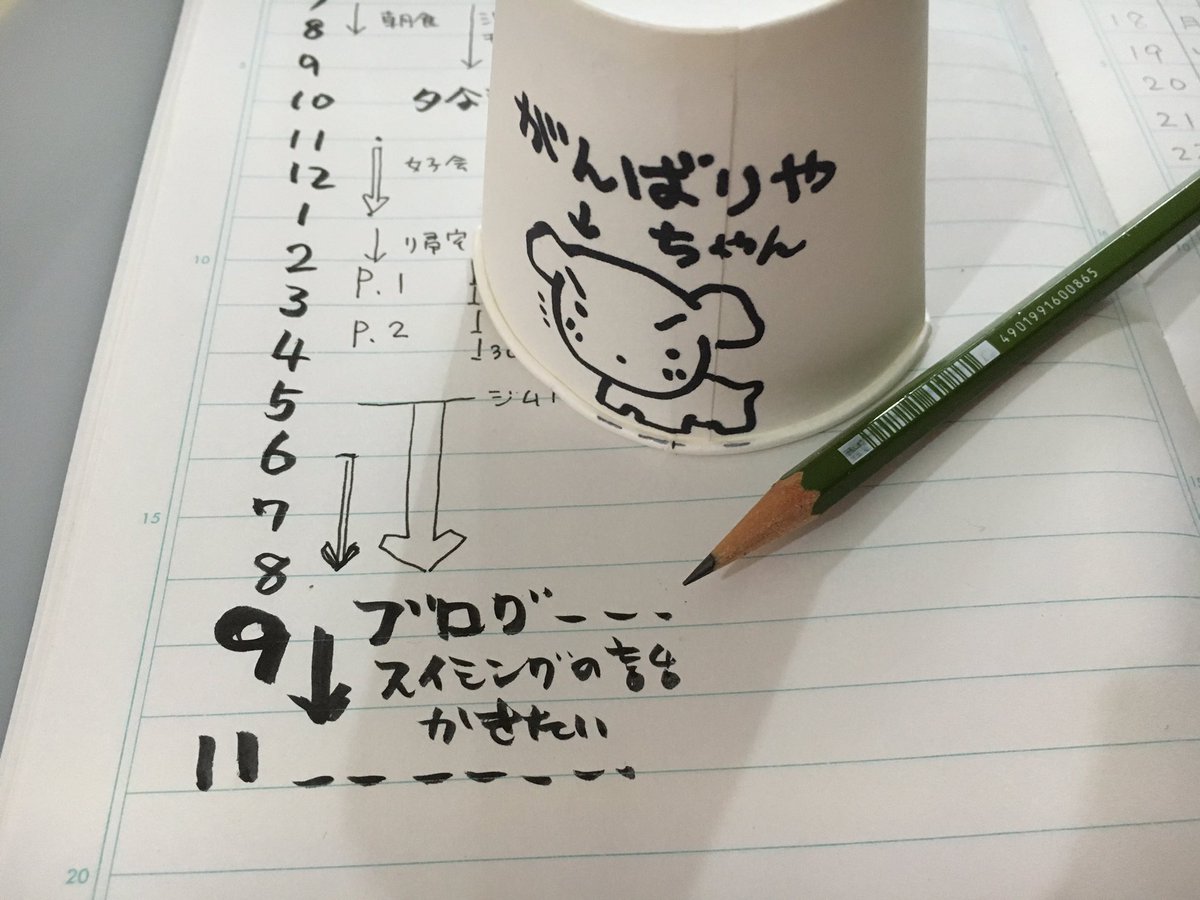 8 朝食
9
10
11
12 女子会
1
2 り帰宅
3 P.1
4 P.2
5 ジム
6
7
8
9 ブログ
スイミングの話
かきたい
11
がんばりや
ちゃん
4901991600865
5
10
15
20
18 月
19
20
21